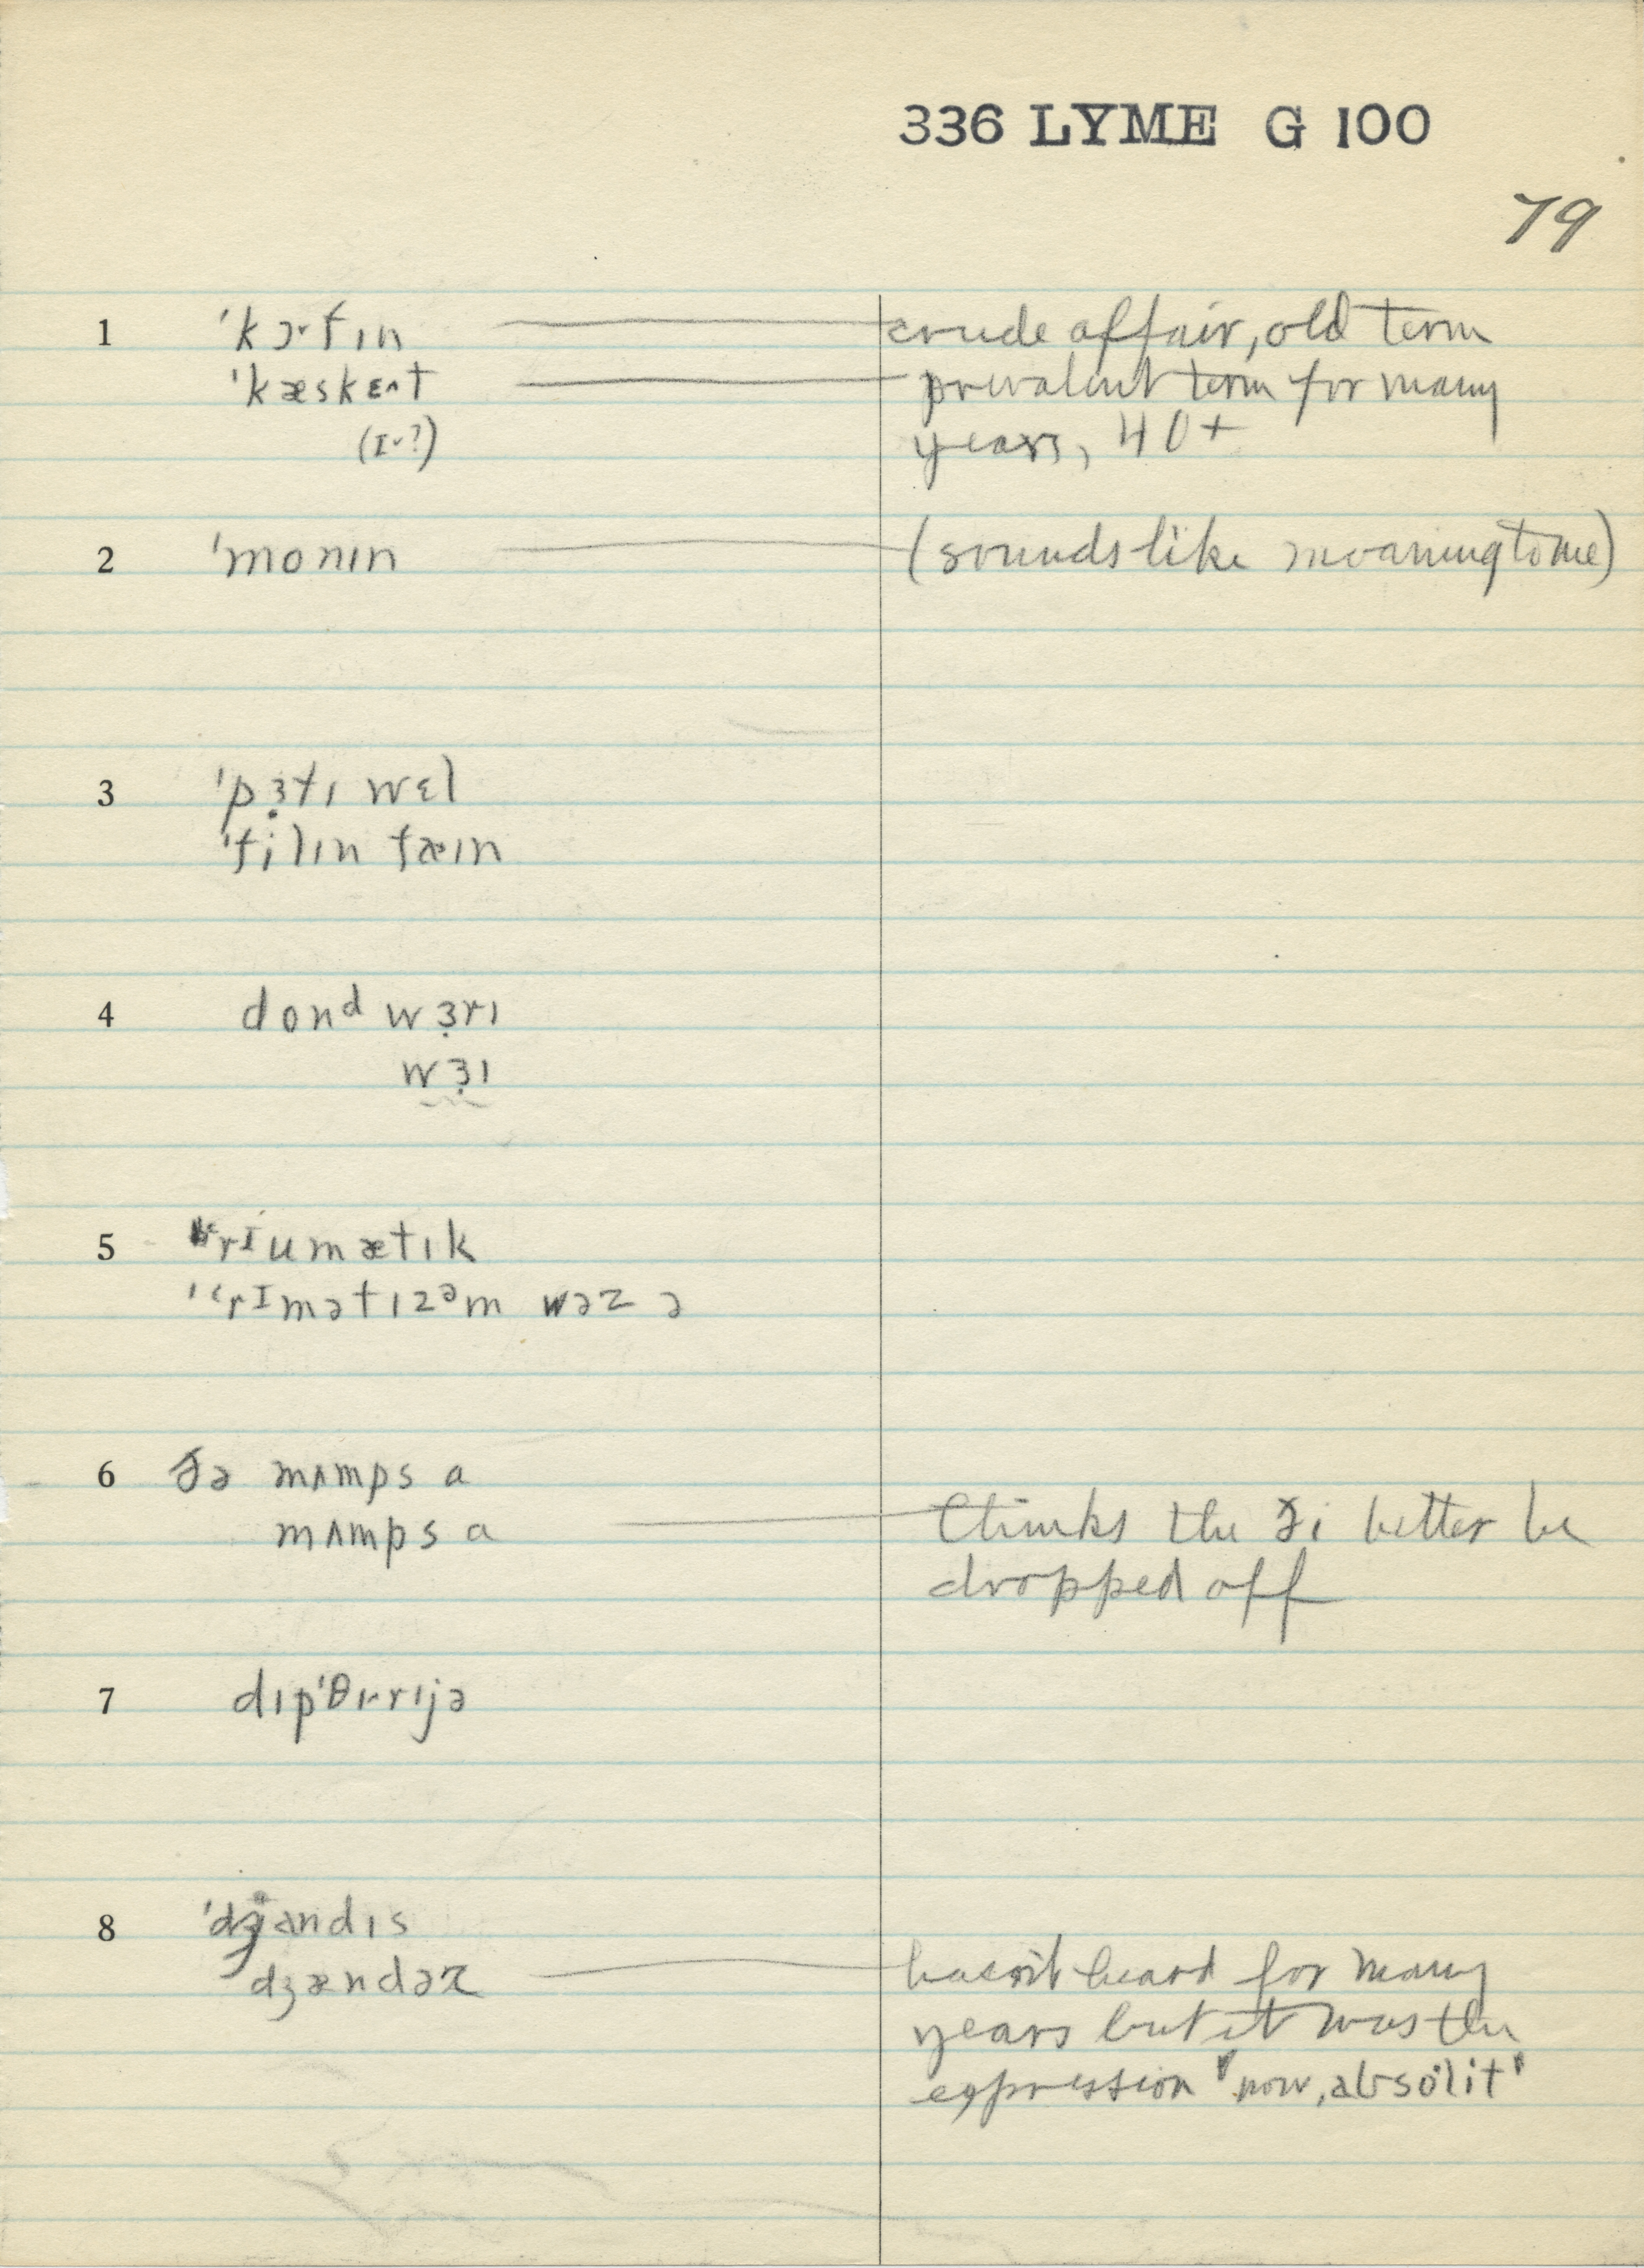 336 LYME G 100
79
1 'kɔ˞fɪn crude affair, old term
'kæskɛ^t prevalent term for many
(ɪ˅?) years, 40+
2 'monɪn (sounds like moaning to me)
3 'pɜ̣tɪ wɛl
'filɪn fæɪn
4 donᵈ wɜ̣rɪ
wɜ̣ɪ
5 rɪumætɪk
'rɪmətɪzᵊm wəz ə
6 ðə mʌmps a
mʌmps a thinks the ði better be
dropped off
7 dɪp'θɪrɪjə
8 'dʒandɪs
dʒændəz hasn't heard for many
years but it was the
expression "now, absolit"